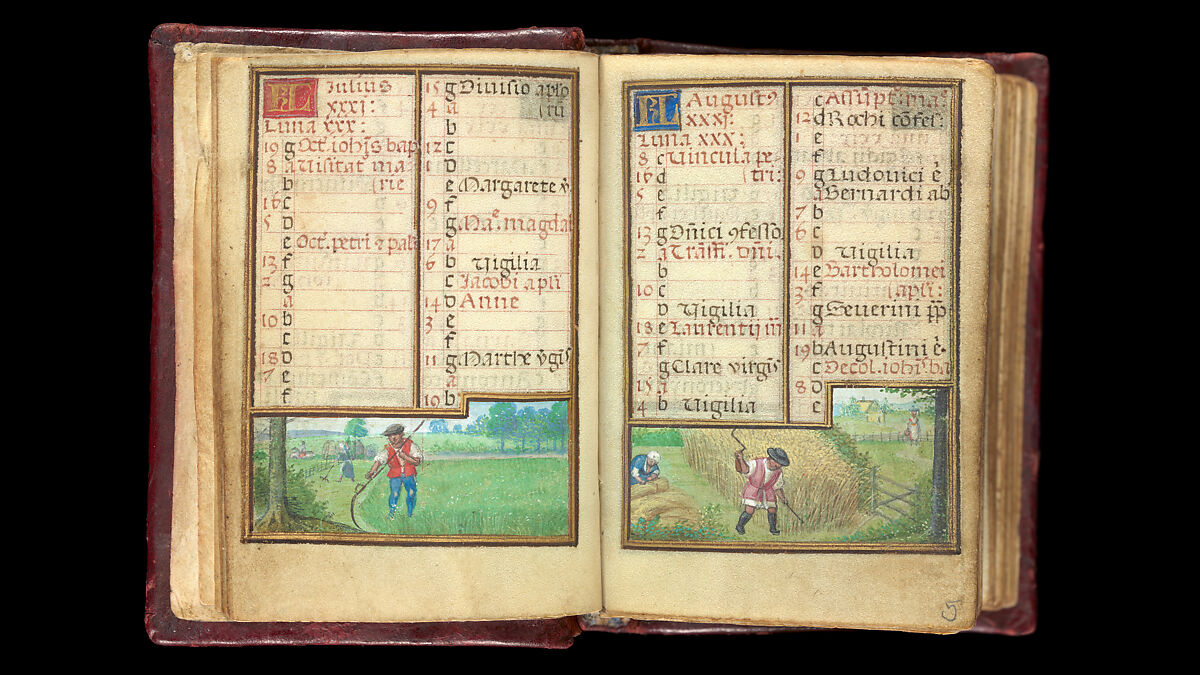 KL Iulius
xxxi:
Luna xxx:
19 g Oct. ioh̄is bap
8 a Uisitat ma:
b (rie
16 c
5 D
e Oct. petri ⁊ pali
13 f
2 g
a
10 b
c
18 D
7 e
f
15 g Diuisio aplo
4 a (rū
b
12 c
1 D
e Margarete v̄.
9 f
g Ma.e magdal
17 a
6 b Uigilia
c Iacobi apli
14 D Anne
3 e
f
11 g Marthe v̄gīs
a
19 b
KL August9
xxxi:
Luna xxx:
8 c Uincula pe
16 d (tri:
5 e
f
13 g Dn̄ici 9fesso
2 a Trāsf. dn̄i.
b
10 c
D Uigilia
18 e Laurentii m̄
7 f
g Clare virgīs
15 a
4 b Uigilia
c Assūpt. ma:
12 d Rochi cōfes:
1 e
f
9 g Ludouici ē
a Bernardi ab
7 b
6 c
D Uigilia
14 e Bartholomei
3 f (apli:
g Seuerini p̄p̄
11 a
19 b Augustini ē.
c Decol. ioh̄is. ba
8 D
e
5